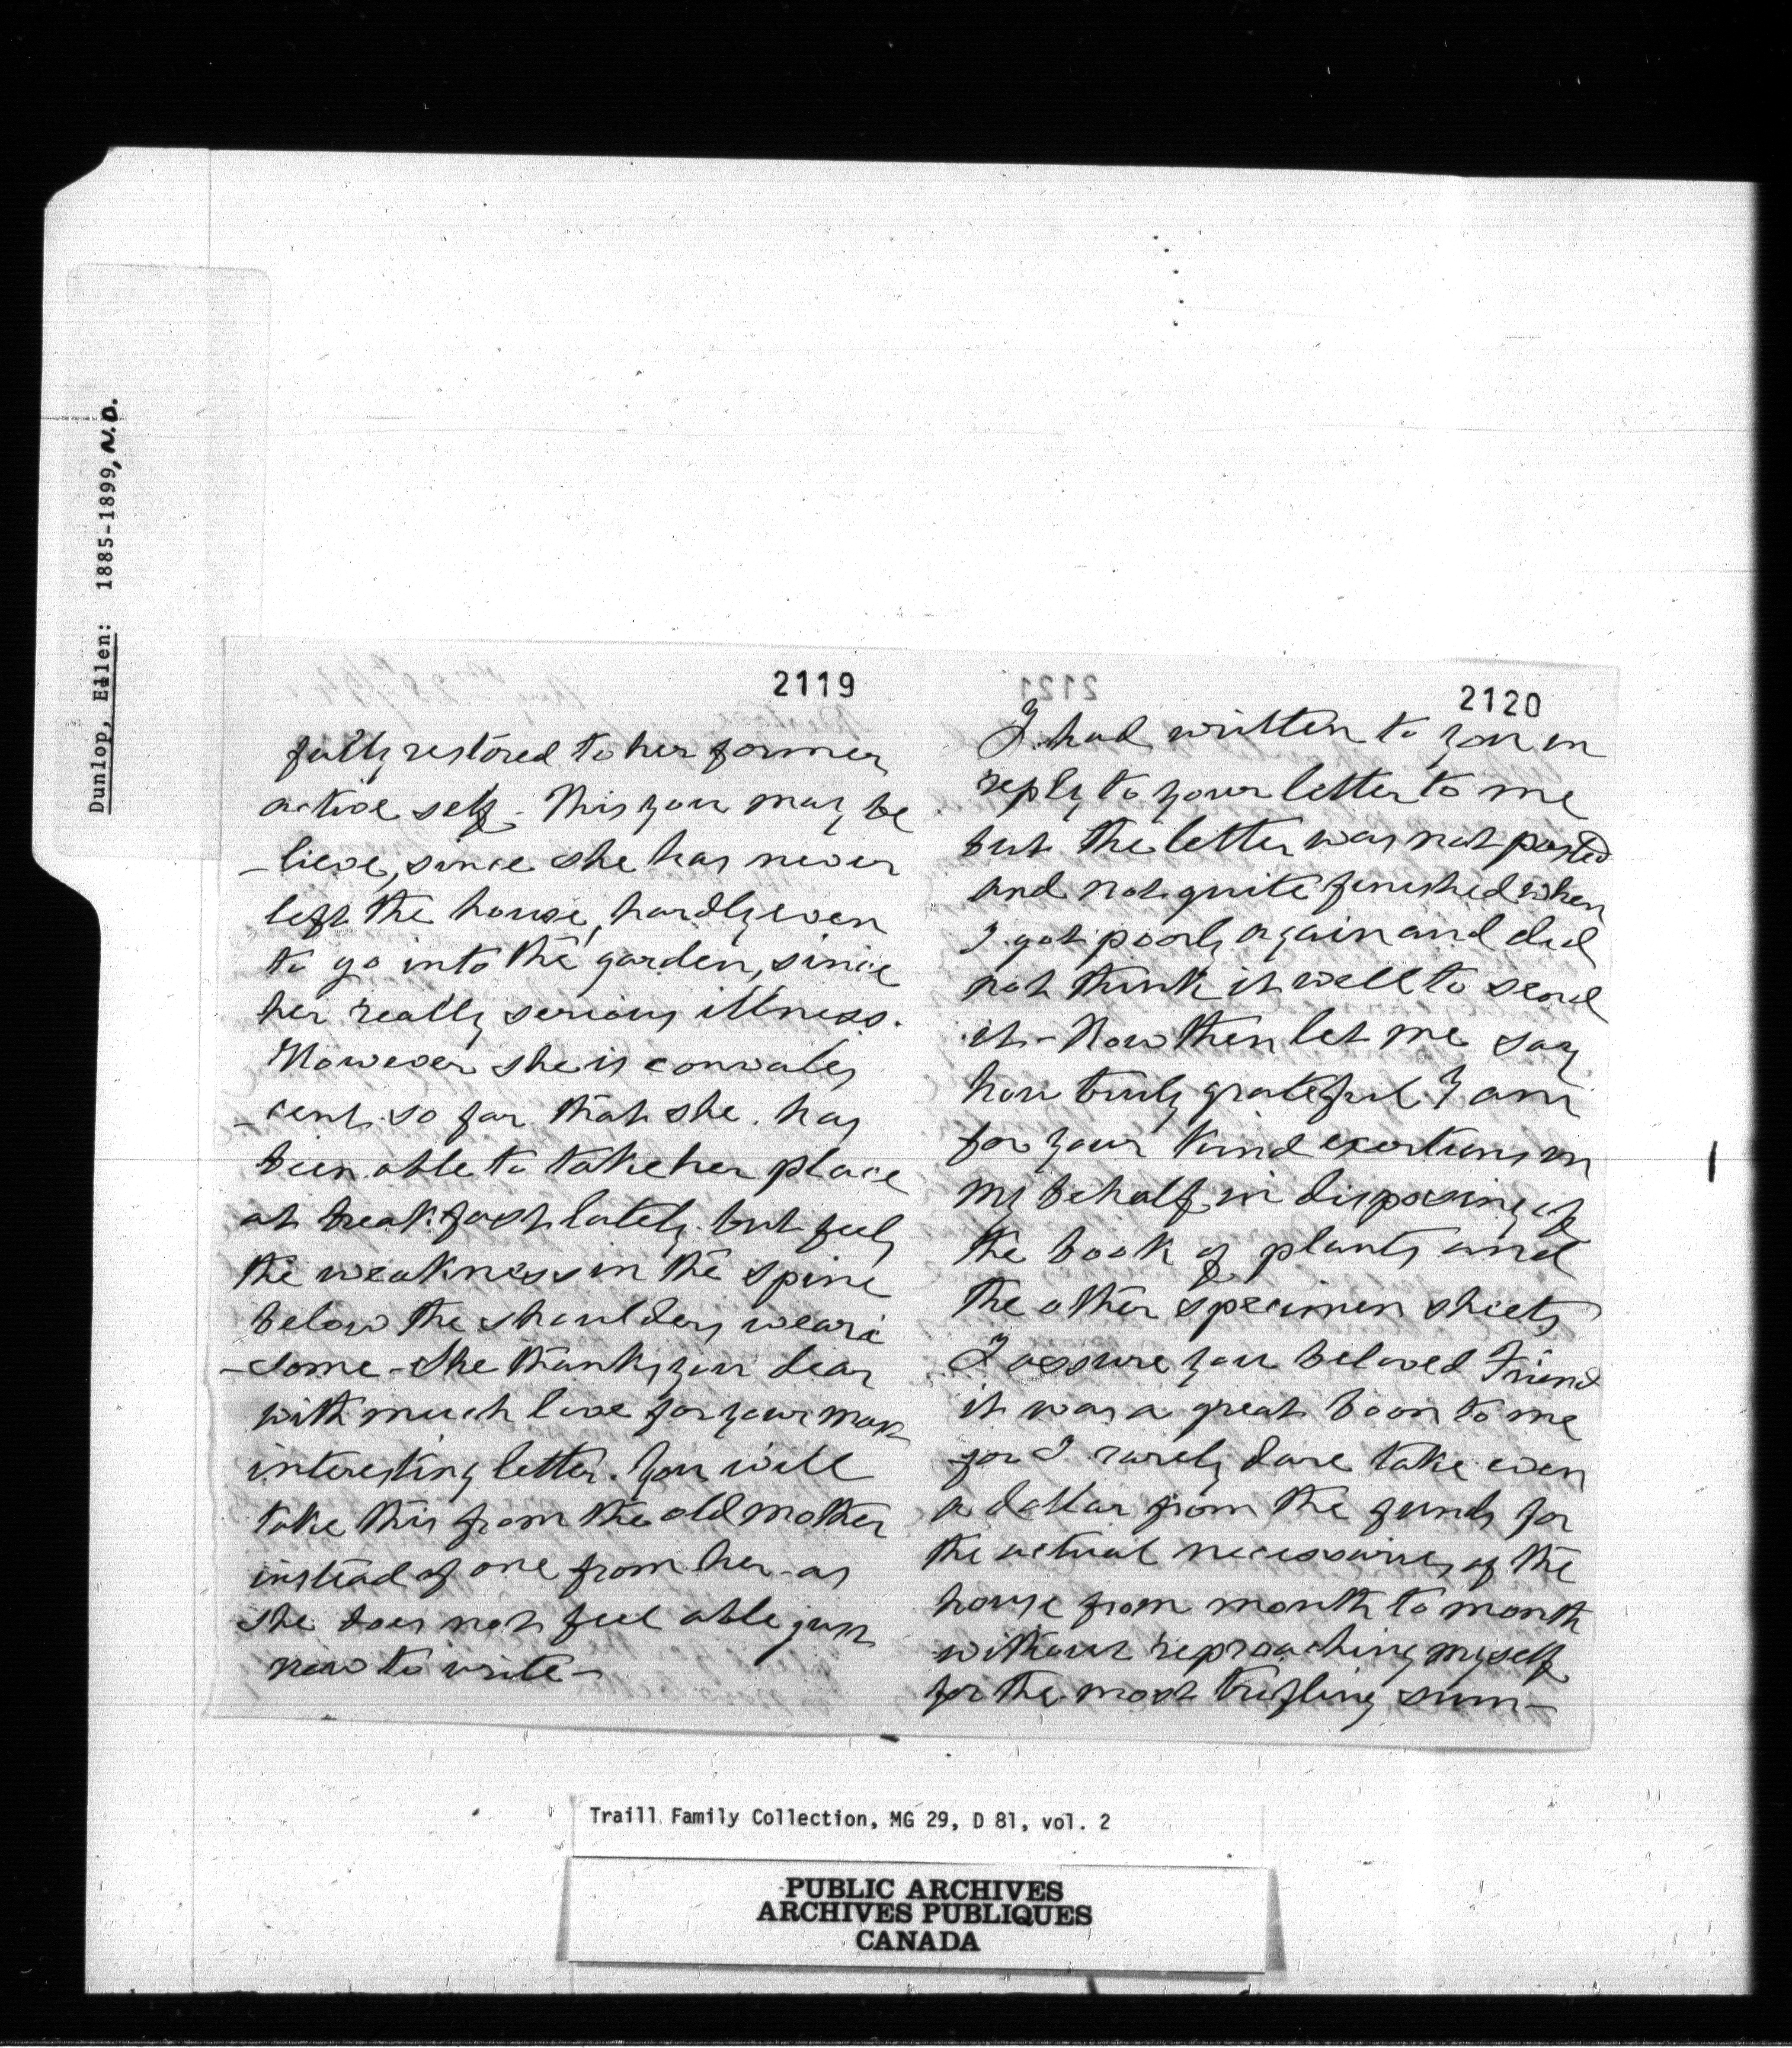 Dunlop, Ellen: 1885-1899, N.D.
2119
fully restored to her former
active self - This you may be
-lieve, since she has never
left the house, hardly even
to go into the garden, since
her really serious illness.
However she is convales
-cent so far that she has
been able to take her place
at breakfast lately but feels
the weakness in the spine
below the shoulders weari
-some - She thanks you dear
with much love for your most
interesting letter. You will
take this from the old mother
instead of one from her - as
she does not feel able just
now to write -
2121
2120
I had written to you in
reply to your letter to me
but the letter was not posted
and not quite finished when
I got poorly again and did
not think it well to send
it - Now then let me say
how truly grateful I am
for your kind exertions on
my behalf in disposing of
the book of plants and
the other specimen sheets
I assure you beloved Friend
it was a great boon to me
for I rarely dare take even
a dollar from the funds for
the actual necessaries of the
house from month to month
without reproaching myself
for the most trifling sum -
Traill Family Collection, MG 29, D 81, vol. 2
PUBLIC ARCHIVES
ARCHIVES PUBLIQUES
CANADA